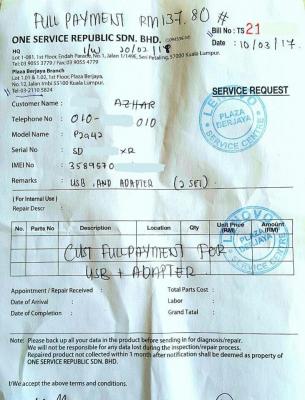 FULL PAYMENT RM 137.80 #
ONE SERVICE REPUBLIC SDN. BHD.
Bill No : TS 21
HQ
I/W 20/02/18
Date : 10/03/17.
Tel: 03 9055 3779 / Fax: 03 9055 4779
Plaza Berjaya Branch
Lot 1.01 & 1.02, 1st Floor, Plaza Berjaya,
No. 12, Jalan Imbi 55100 Kuala Lumpur.
Tel: 03-2110 5824
SERVICE REQUEST
Customer Name : AZHAR
Telephone No : 010- 010
Model Name : P2a42
Serial No : SD XR
IMEI No : 3589570
Remarks : USB AND ADAPTER (2 SET)
LENOVO
PLAZA BERJAYA
SERVICE CENTRE
( For Internal Use )
Repair Descr
No. Parts No Description Location Qty Unit Price (RM) Amount (RM)
CUST FULL PAYMENT FOR
USB + ADAPTER
LENOVO
PLAZA BERJAYA
SERVICE CENTRE
Appointment / Repair Received : Total Parts Cost :
Date of Arrival : Labor :
Date of Completion : Grand Total :
Note : Please back up all your data in the product before sending in for diagnosis/repair.
We will not be responsible for any data lost during the inspection/repair process.
Repaired product not collected within 1 month after notification shall be deemed as property of
ONE SERVICE REPUBLIC SDN. BHD.
I/We accept the above terms and conditions.